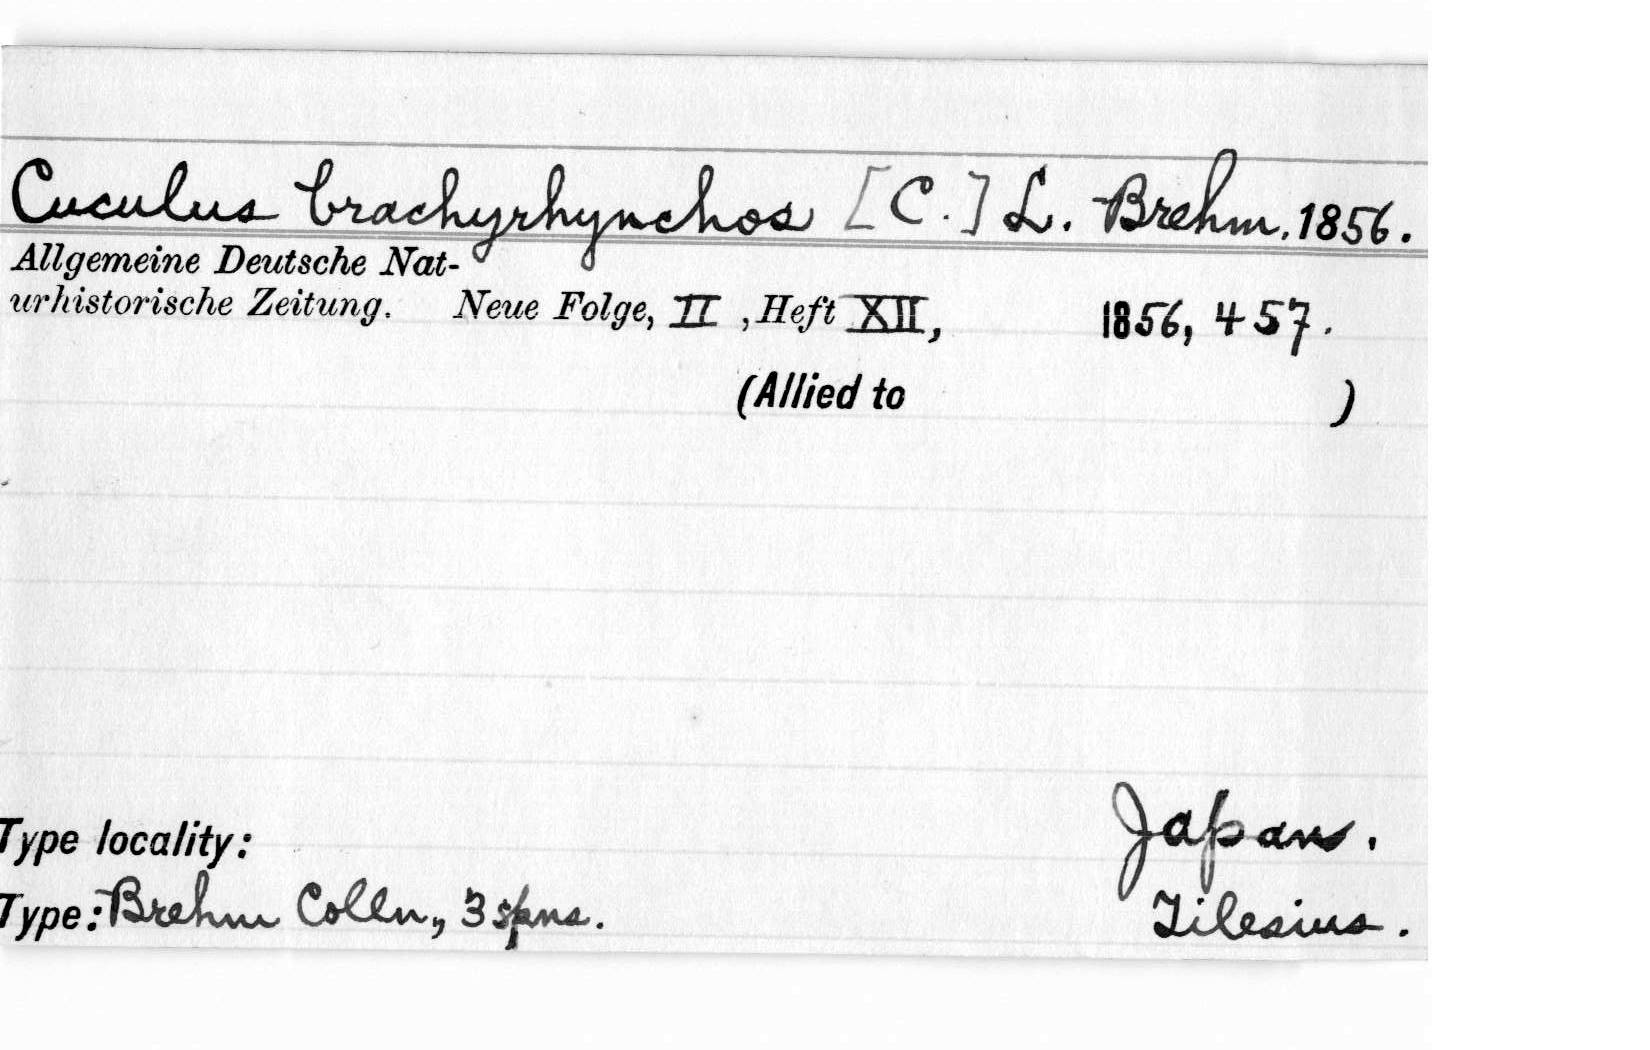 Cuculus brachyrhynchos [C.] L. Brehm, 1856.
Allgemeine Deutsche Nat-
urhistorische Zeitung. Neue Folge, II , Heft XII, 1856, 457.
(Allied to )
Type locality: Japan.
Type: Brehm Colln., 3 spns. Tilesius.